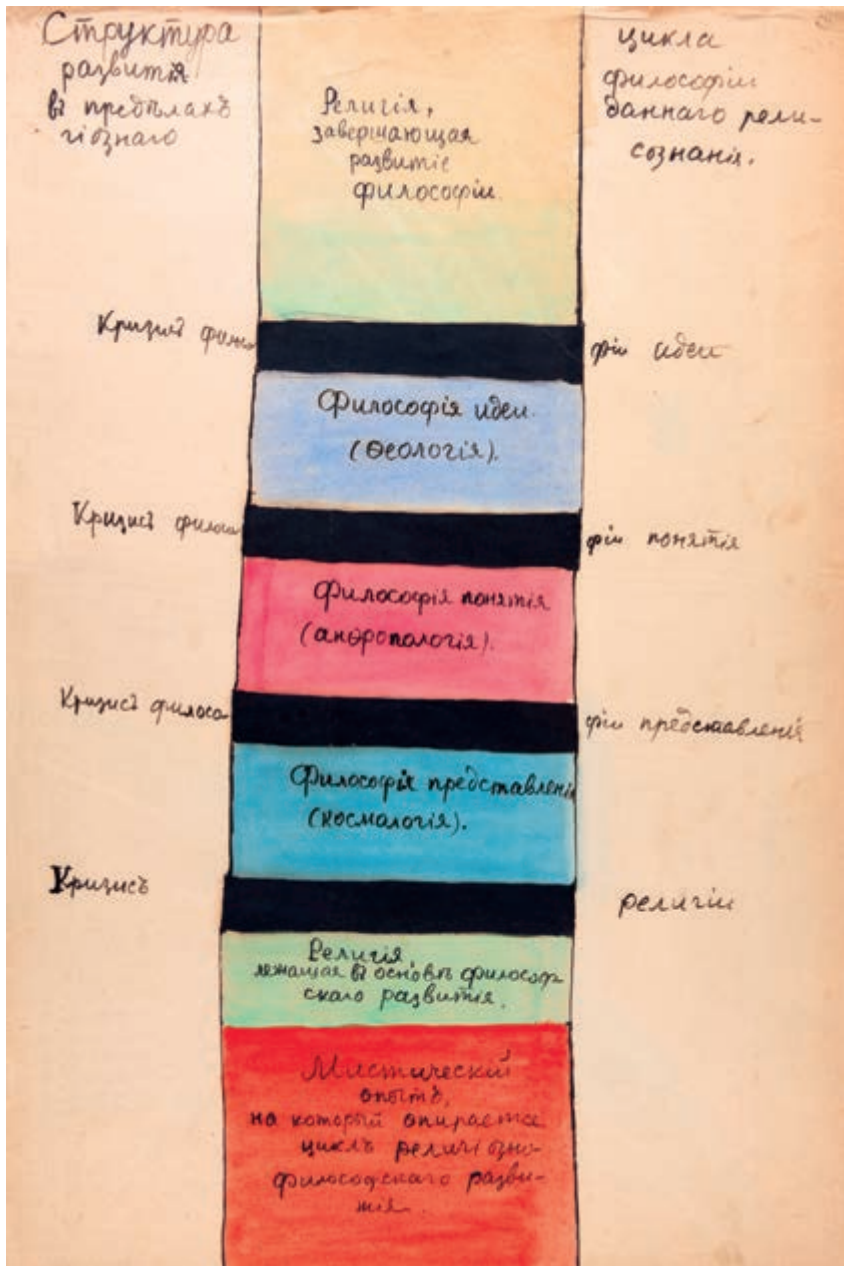 Структура
развитія
въ предѣлахъ
гіознаго
цикла
философіи
даннаго рели-
сознанія.
Религія,
завершающая
развитіе
философіи.
Кризисъ филосо
фіи идеи
Философія идеи.
(Ѳеологія).
Кризисъ филосо
фіи понятія
Философія понятія
(анѳропологія).
Кризисъ филосо
фіи представленія
Философія представленія
(космологія).
Кризисъ
религіи
Религія,
лежащая въ основѣ философ
скаго развитія.
Мистическій
опытъ,
на который опирается
циклъ религіозно-
философскаго разви-
тія.